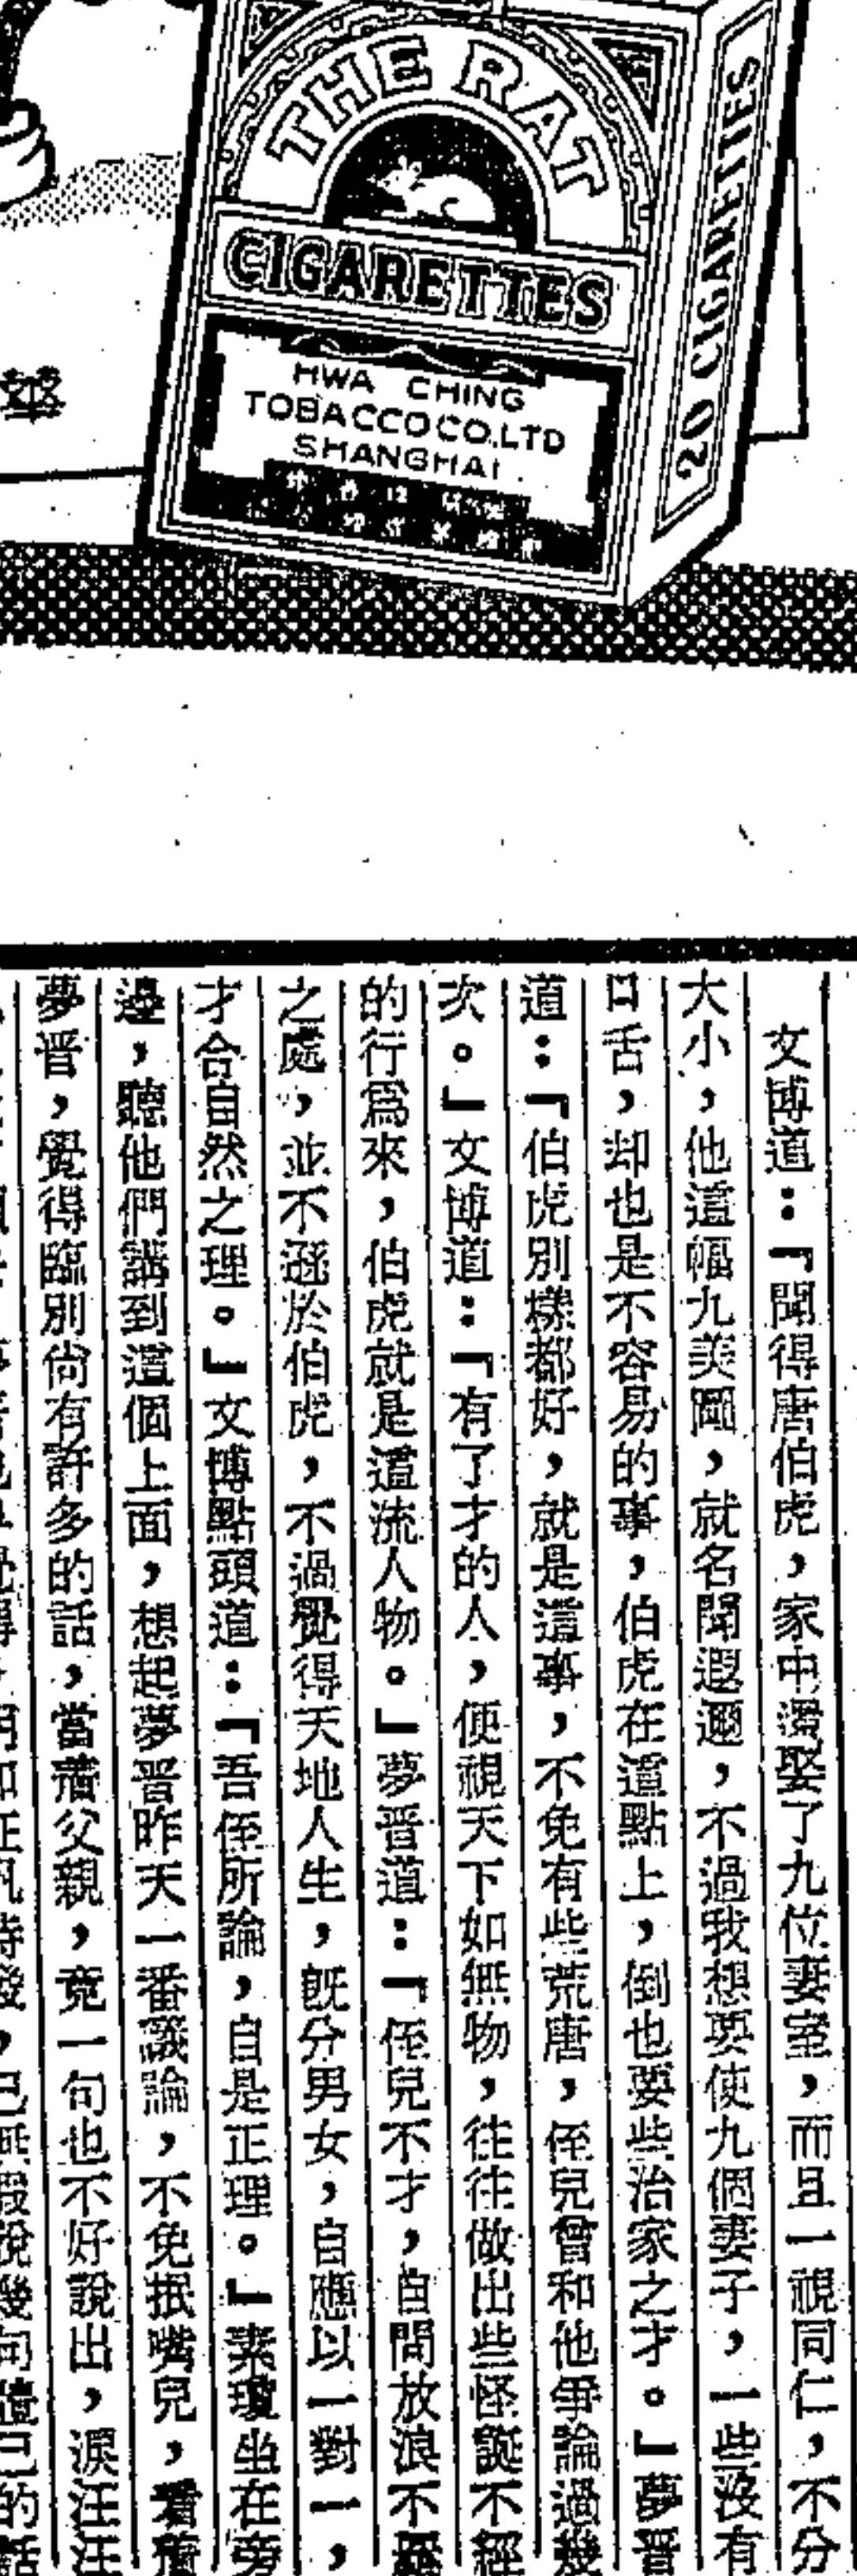 THE RAT
CIGARETTES
HWA CHING
TOBACCO CO.LTD
SHANGHAI
20 CIGARETTES
文博道：『聞得唐伯虎，家中還娶了九位妻室，而且一視同仁，不分
大小，他這幅九美圖，就名聞遐邇，不過我想要使九個妻子，一些沒有
口舌，却也是不容易的事，伯虎在這點上，倒也要些治家之才。』夢晋
道：『伯虎別樣都好，就是這事，不免有些荒唐，侄兒曾和他爭論過幾
次。』文博道：『有了才的人，便視天下如無物，往往做出些怪誕不經
的行爲來，伯虎就是這流人物。』夢晋道：『侄兒不才，自問放浪不羈
之處，並不遜於伯虎，不過覺得天地人生，旣分男女，自應以一對一，
才合自然之理。』文博點頭道：『吾侄所論，自是正理。』素瓊坐在旁
邊，聽他們講到這個上面，想起夢晋昨天一番議論，不免抿嘴兒，看着
夢晋，覺得臨別尙有許多的話，當着父親，竟一句也不好說出，淚汪汪